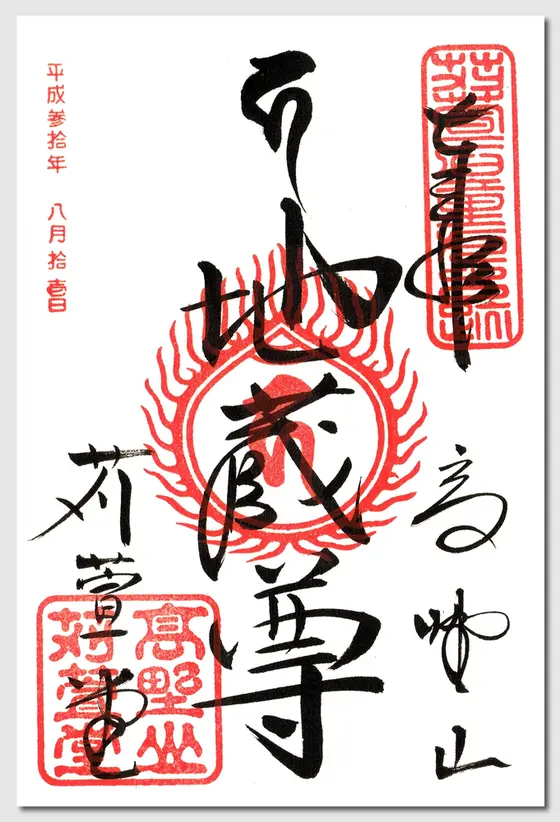 奉拝
高野山
地蔵尊
苅萱堂
平成参拾年 八月拾壱日
高野山
苅萱堂